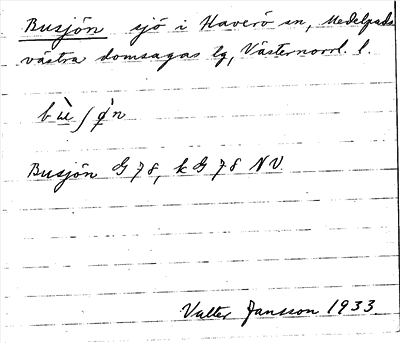 Busjön sjö i Haverö sn, Medelpads
västra domsagas lg, Västernorrl. l.
bu̇̀ʃø̇n
Busjön G 78, k G 78 NV.
Valter Jansson 1933